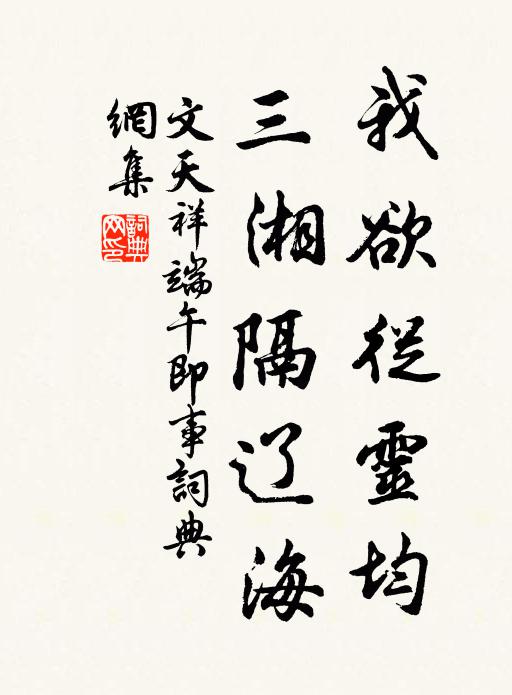 我欲從靈均
三湘隔辽海
文天祥端午即事詞典
網集
詞典
网印